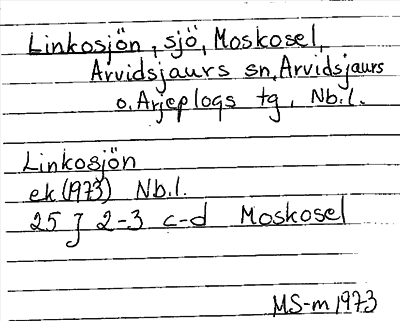 Linkosjön, sjö, Moskosel,
Arvidsjaurs sn, Arvidsjaurs
o. Arjeplogs tg, Nb.l.
Linkosjön
ek (1973) Nb.l.
25 J 2-3 c-d Moskosel
MS-m 1973